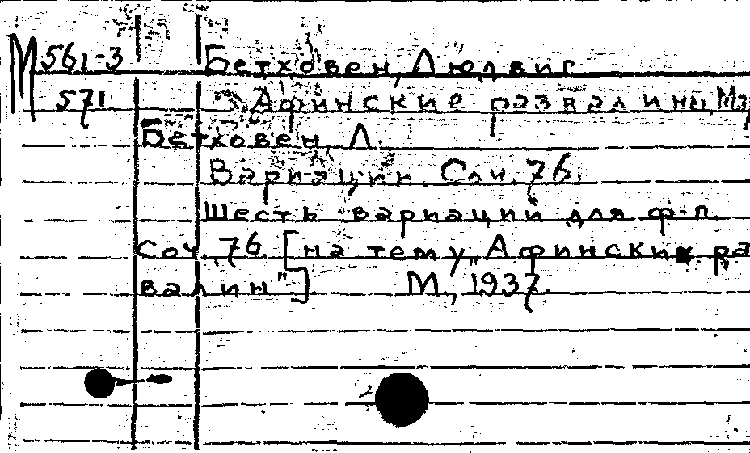 М 561-3 Бетховен, Людвиг
571 Афинские развалины. Ма
Бетховен, Л.
Вариации. Соч. 76.
Шесть вариаций для ф-п.
Соч. 76. [на тему „Афинских ра
валин"] М., 1937.